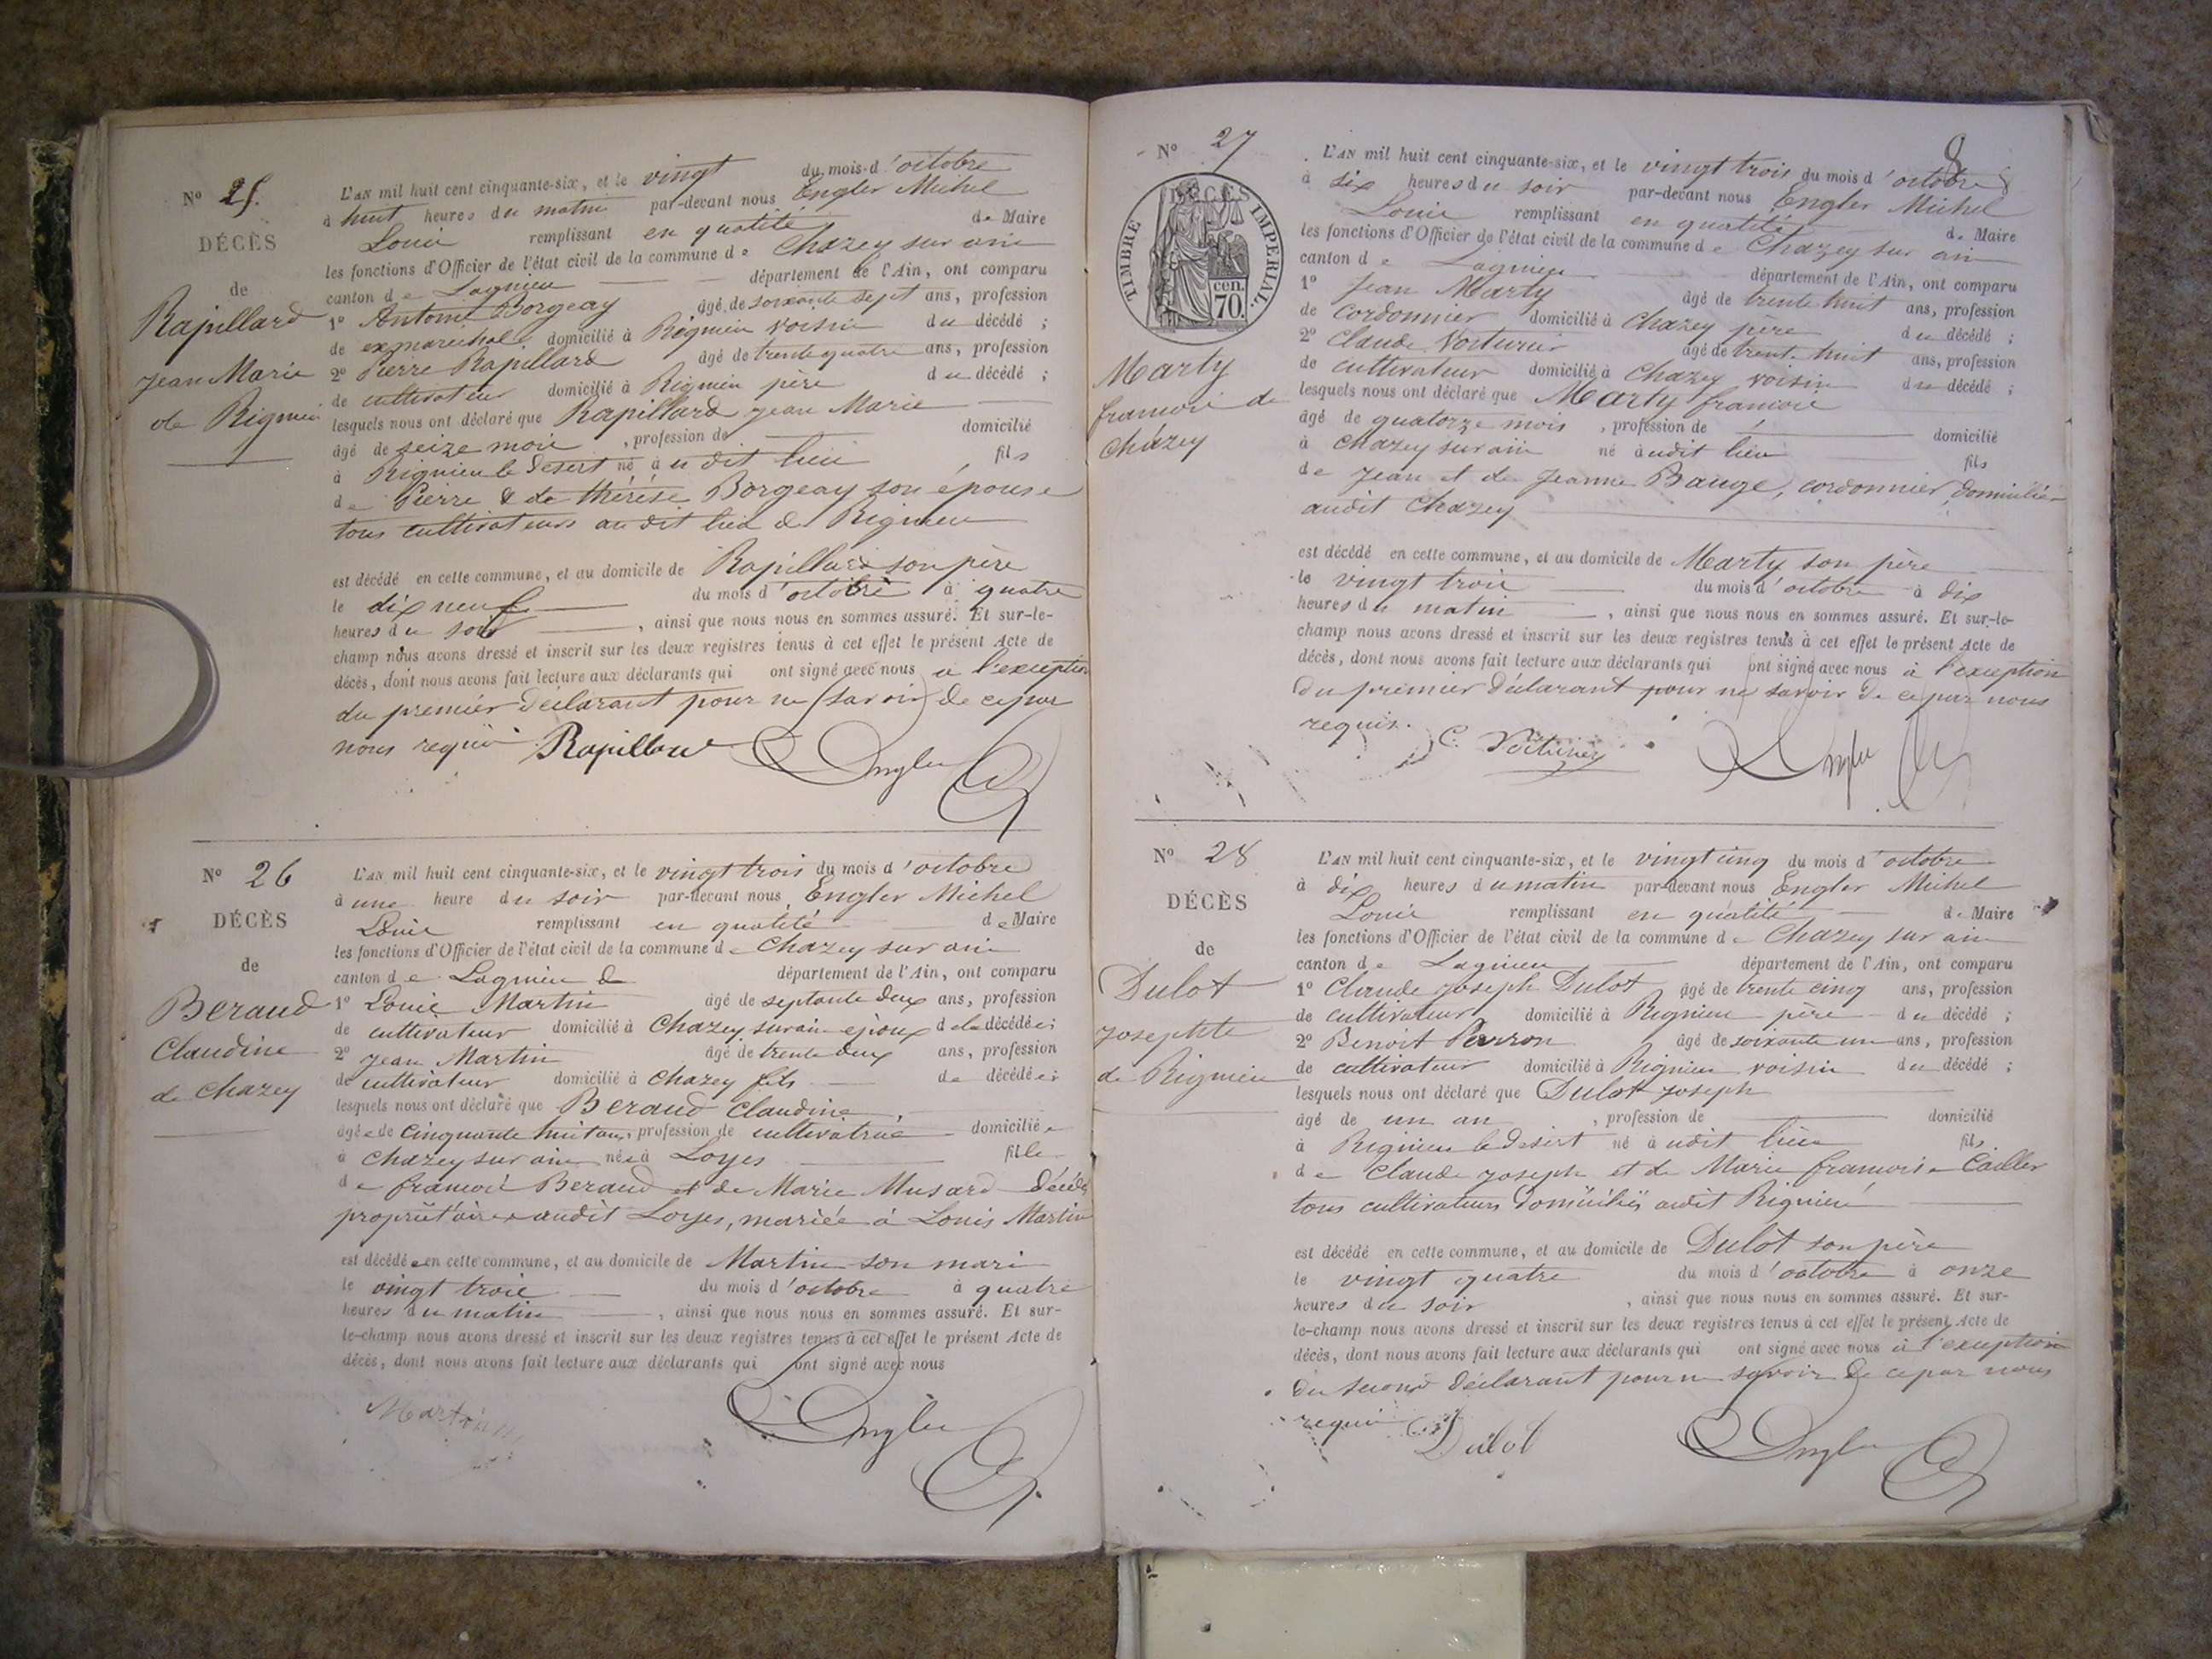 N° 25.
DÉCÈS
de
Rapillard
Jean Marie
de Rignieu
L'AN mil huit cent cinquante-six, et le vingt du mois d'octobre
à huit heures du matin par-devant nous Engler Michel
Louis remplissant en qualité de Maire
les fonctions d'Officier de l'état civil de la commune de Chazey sur ain
canton de Lagnieu département de l'Ain, ont comparu
1° Antoine Borgeay âgé de soixante sept ans, profession
de exmarechal domicilié à Rignieu voisin du décédé ;
2° Pierre Rapillard âgé de trente quatre ans, profession
de cultivateur domicilié à Rignieu père du décédé ;
lesquels nous ont déclaré que Rapillard Jean Marie
âgé de seize mois , profession de domicilié
à Rignieu le Desert né à u dit lieu fils
de Pierre & de thérése Borgeay son épouse
tous cultivateurs au dit lieu de Rignieu
est décédé en cette commune, et au domicile de Rapillard son père
le dix neuf du mois d'octobre à quatre
heures du soir , ainsi que nous nous en sommes assuré. Et sur-le-
champ nous avons dressé et inscrit sur les deux registres tenus à cet effet le présent Acte de
décès, dont nous avons fait lecture aux déclarants qui ont signé avec nous a l'exception
du premier Déclarant pour ne savoir de ce par
nous requis Rapillard Engler
N° 26
DÉCÈS
de
Beraud
Claudine
de Chazey
L'AN mil huit cent cinquante-six, et le vingt trois du mois d'octobre
à une heure du soir par-devant nous Engler Michel
Louis remplissant en qualité de Maire
les fonctions d'Officier de l'état civil de la commune de Chazey sur ain
canton de Lagnieu département de l'Ain, ont comparu
1° Louis Martin âgé de septante deux ans, profession
de cultivateur domicilié à Chazey surain epoux de la décédée ;
2° Jean Martin âgé de trente deux ans, profession
de cultivateur domicilié à Chazey fils de décédée ;
lesquels nous ont déclaré que Beraud Claudine
âgée de Cinquante huit ans, profession de cultivatrice domiciliée
à Chazey sur ain née à Loyes fille
de francois Beraud et de Marie Musard décédés
propriétaires audit Loyes, mariée à Louis Martin
est décédée en cette commune, et au domicile de Martin son mari
le vingt trois du mois d'octobre à quatre
heures du matin , ainsi que nous nous en sommes assuré. Et sur-
le-champ nous avons dressé et inscrit sur les deux registres tenus à cet effet le présent Acte de
décès, dont nous avons fait lecture aux déclarants qui ont signé avec nous
Martin Engler
8
N° 27
DÉCÈS
TIMBRE IMPÉRIAL.
cen.
70.
Marty
francois de
Chazey
L'AN mil huit cent cinquante-six, et le vingt trois du mois d'octobre
à six heures du soir par-devant nous Engler Michel
Louis remplissant en qualité de Maire
les fonctions d'Officier de l'état civil de la commune de Chazey sur ain
canton de Lagnieu département de l'Ain, ont comparu
1° Jean Marty âgé de trente huit ans, profession
de Cordonnier domicilié à Chazey père du décédé ;
2° Claude Voiturier âgé de trente huit ans, profession
de cultivateur domicilié à Chazey voisin du décédé ;
lesquels nous ont déclaré que Marty francois
âgé de quatorze mois , profession de domicilié
à Chazey sur ain né à udit lieu fils
de Jean et de Jeanne Bauge, cordonnier Domicilié
audit Chazey
est décédé en cette commune, et au domicile de Marty son père
le vingt trois du mois d'octobre à dix
heures du matin , ainsi que nous nous en sommes assuré. Et sur-le-
champ nous avons dressé et inscrit sur les deux registres tenus à cet effet le présent Acte de
décès, dont nous avons fait lecture aux déclarants qui ont signé avec nous à l'exception
Du premier Déclarant pour ne savoir De ce par nous
requis. C. Voiturier Engler
N° 28
DÉCÈS
de
Dulot
Josephte
de Rignieu
L'AN mil huit cent cinquante-six, et le vingt cinq du mois d'octobre
à dix heures du matin par-devant nous Engler Michel
Louis remplissant en qualité de Maire
les fonctions d'Officier de l'état civil de la commune de Chazey sur ain
canton de Lagnieu département de l'Ain, ont comparu
1° Claude Joseph Dulot âgé de trente cinq ans, profession
de cultivateur domicilié à Rignieu père du décédé ;
2° Benoit Perron âgé de soixante un ans, profession
de cultivateur domicilié à Rignieu voisin du décédé ;
lesquels nous ont déclaré que Dulot Joseph
âgé de un an , profession de domicilié
à Rignieu le Desert né à udit lieu fils
de Claude Joseph et de Marie francoise Cailler
tous cultivateurs Domiciliés audit Rignieu
est décédé en cette commune, et au domicile de Dulot son père
le vingt quatre du mois d'octobre à onze
heures du soir , ainsi que nous nous en sommes assuré. Et sur-
le-champ nous avons dressé et inscrit sur les deux registres tenus à cet effet le présent Acte de
décès, dont nous avons fait lecture aux déclarants qui ont signé avec nous à l'exception
Du second Déclarant pour ne savoir De ce par nous
requis Dulot Engler